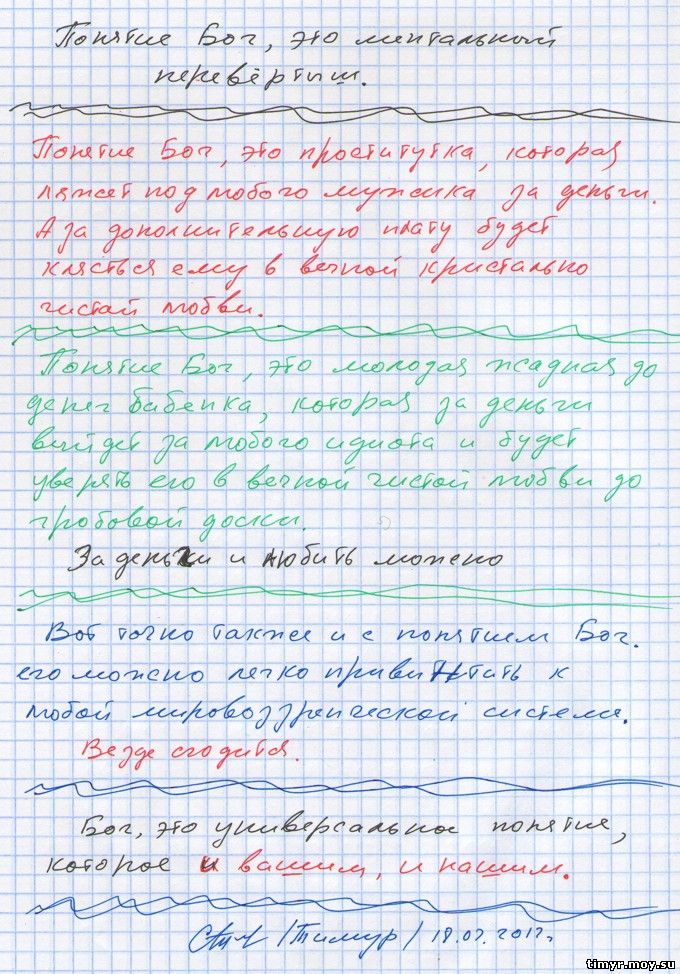 Понятие Бог, это ментальный
перевёртыш.
Понятие Бог, это проститутка, которая
ляжет под любого мужика за деньги.
А за дополнительную плату будет
клясться ему в вечной кристально
чистой любви.
Понятие Бог, это молодая жадная до
денег бабенка, которая за деньги
выйдет за любого идиота и будет
уверять его в вечной чистой любви до
гробовой доски.
За деньги и любить можно
Вот точно также и с понятием Бог.
его можно легко привинтить к
любой мировоззренческой системе.
Везде сгодится.
Бог, это универсальное понятие,
которое и вашим, и нашим.
/Тимур/ 18.07.2012г.
timyr.moy.su